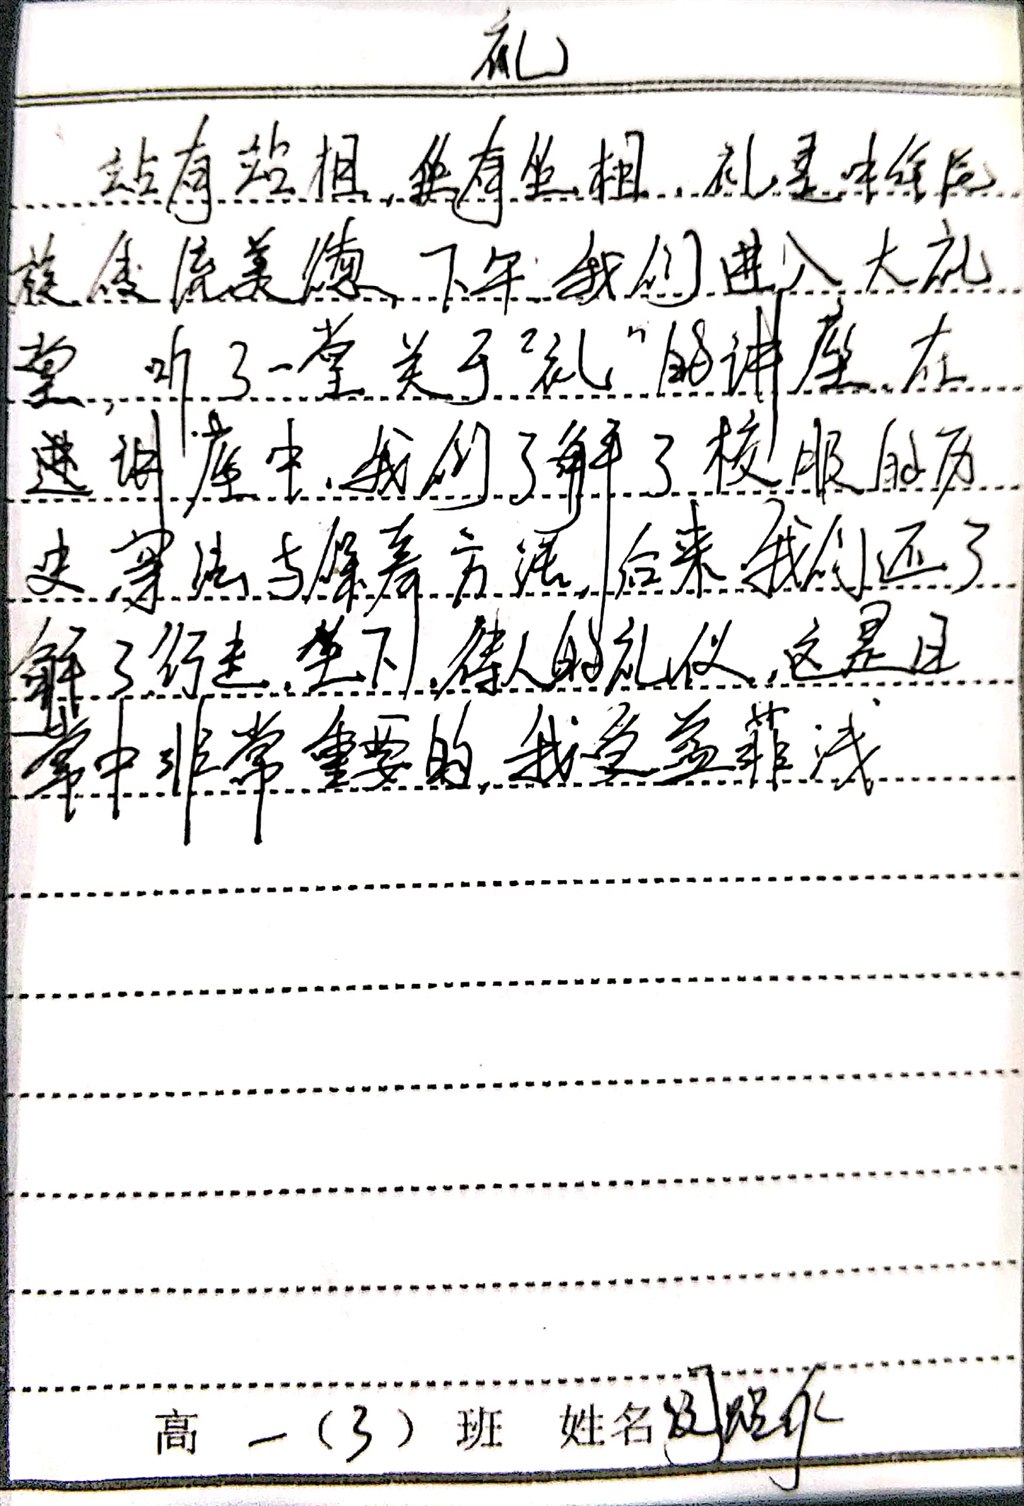 礼
站有站相，坐有坐相，礼是中华民
族优流美德，下午，我们进入大礼
堂，听了一堂关于“礼”的讲座，在
进讲座中，我们了解了校服的历
史，穿法与保养方法，后来，我们还了
解了行走，坐下，待人的礼仪，这是日
常中非常重要的，我受益菲浅
高一（3）班 姓名